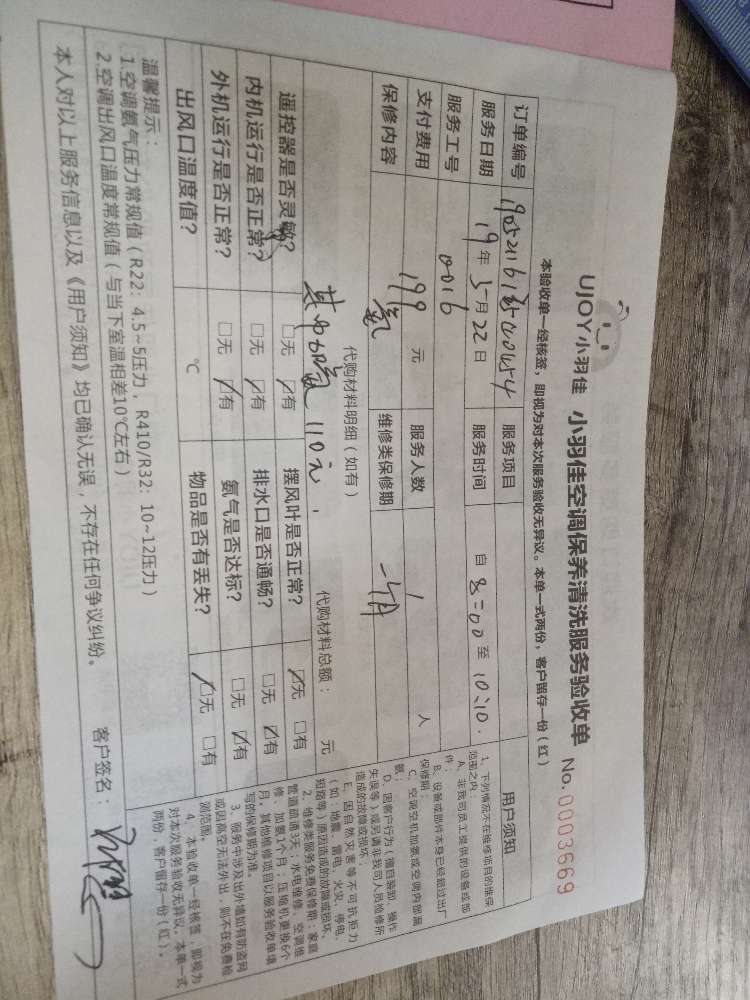 UJOY小羽佳 小羽佳空调保养清洗服务验收单 No.0003669
本验收单一经核签，即视为对本次服务验收无异议。本单一式两份，客户留存一份（红）
订单编号 服务项目
服务日期 19年5月22日 服务时间 自8:00至10:10.
服务工号 0016
支付费用 199元 服务人数 1人
保修内容 氨 维修类保修期 一个月
代购材料明细（如有） 代购材料总额： 元
110元，
遥控器是否灵敏？ □无 ☑有 摆风叶是否正常？ ☑无 □有
内机运行是否正常？ □无 ☑有 排水口是否通畅？ □无 ☑有
外机运行是否正常？ □无 ☑有 氨气是否达标？ □无 ☑有
出风口温度值？ ℃ 物品是否有丢失？ ☑无 □有
温馨提示：
1.空调氨气压力常规值（R22：4.5~5压力，R410/R32：10~12压力）
2.空调出风口温度常规值（与当下室温相差10℃左右）
本人对以上服务信息以及《用户须知》均已确认无误，不存在任何争议纠纷。 客户签名：
用户须知
1、下列情况不在维修项目的维保
范围之内：
A、非我司员工提供的设备或部
件；
B、设备或部件本身已经超过出厂
保修期；
C、空调空机加氨或空调内部漏
氨；
D、因客户行为（擅自装卸、操作
失误等）或另请非我司人员检修所
造成的故障或损坏；
E、因自然灾害等不可抗拒力
（如：地震、雷电、火灾、停电、
短路等）原因造成的故障或损坏。
2、维修类服务免费保修期：家庭
管道疏通3天；水电维修、空调维
修、加氨1个月；压缩机更换6个
月，其他维修项目以服务验收单填
写的保修期为准。
3、服务中涉及出外墙如有防盗网
或因高空无法外出，则不在免费检
测范围。
4、本验收单一经核签，即视为
对本次服务验收无异议。本单一式
两份，客户留存一份（红）。